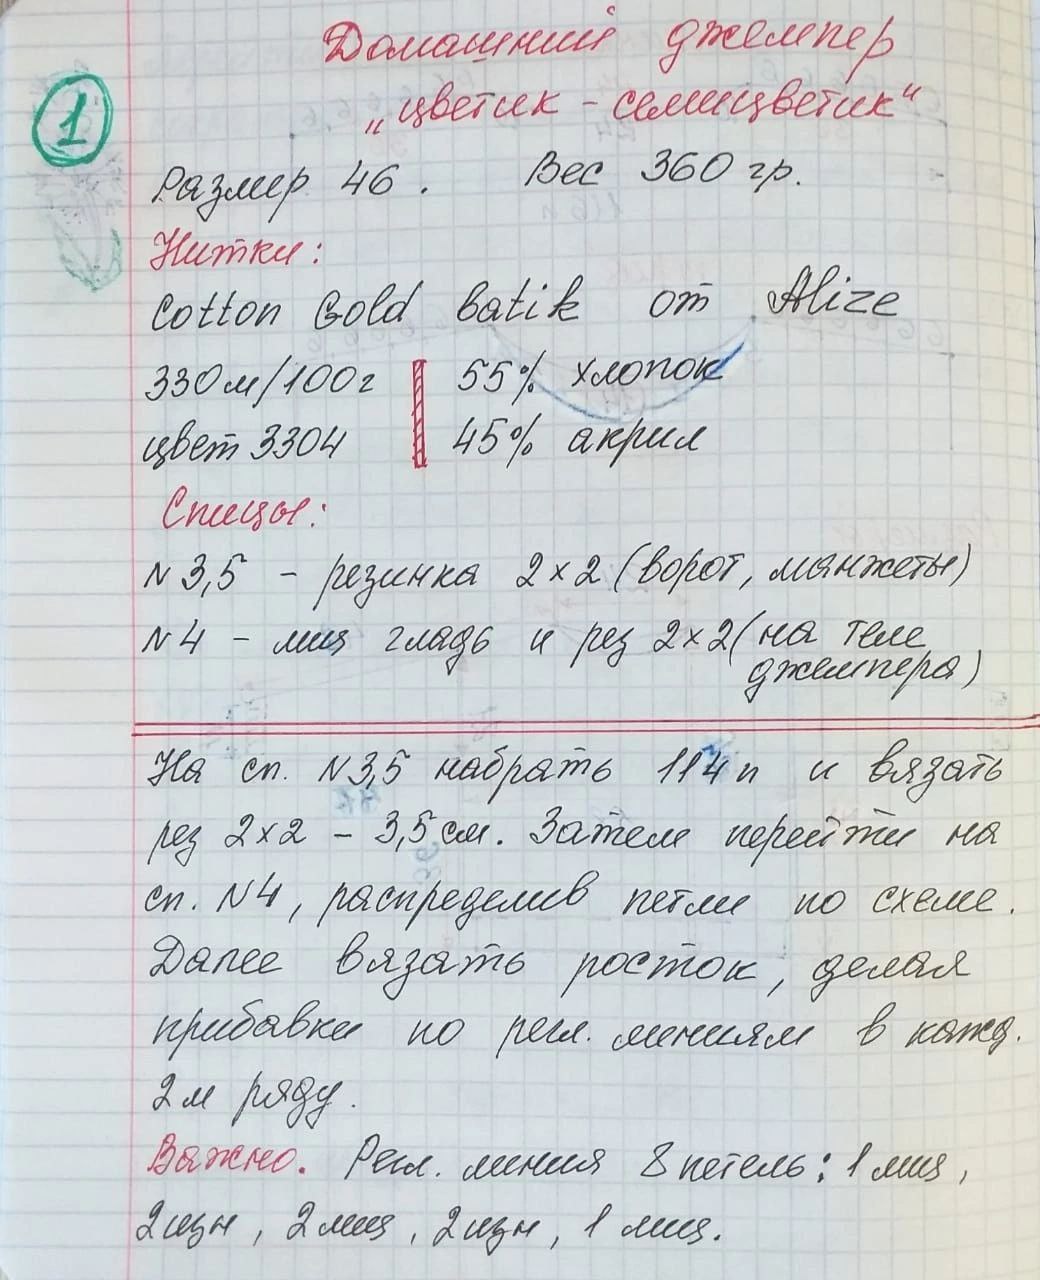 Домашний джемпер
„цветик - семицветик“
1
Размер 46. Вес 360 гр.
Нитки:
Cotton Gold batik от Alize
330м/100г 55% хлопок
цвет 3304 45% акрил
Спицы:
N3,5 - резинка 2х2 (ворот, манжеты)
N4 - лиц гладь и рез 2х2 (на теле
джемпера)
На сп. N3,5 набрать 114 п и вязать
рез 2х2 - 3,5 см. Затем перейти на
сп. N4, распределив петли по схеме.
Далее вязать росток, делая
прибавки по регл. линиям в кажд.
2м ряду.
Важно. Регл. линия 8 петель: 1 лиц,
2 изн, 2 лиц, 2 изн, 1 лиц.